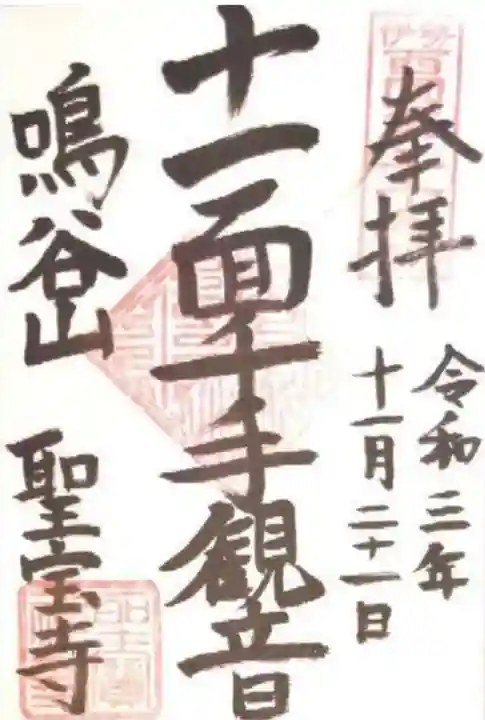 奉拝
令和三年
十一月二十一日
十一面千手観音
鳴谷山 聖宝寺